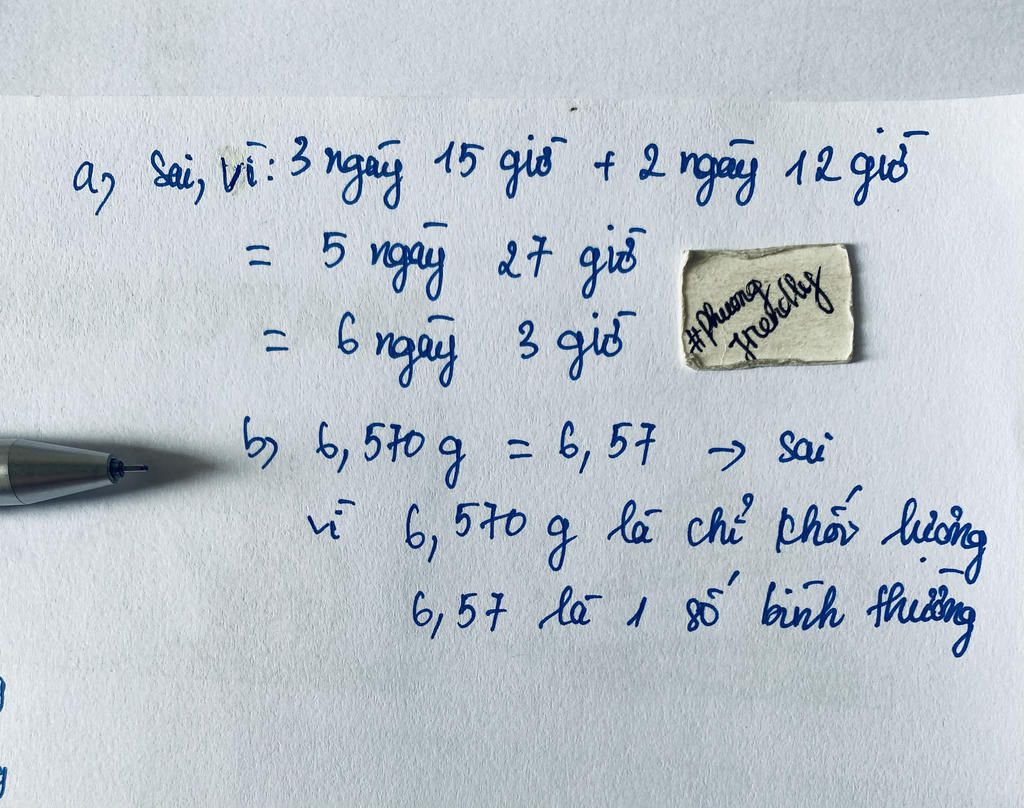 a, Sai, vì: 3 ngày 15 giờ + 2 ngày 12 giờ
= 5 ngày 27 giờ
= 6 ngày 3 giờ
#Phuong
friendly
b, 6,570 g = 6,57 → sai
vì 6,570 g là chỉ khối lượng
6,57 là 1 số bình thường